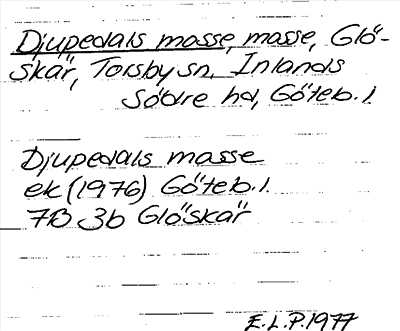 Djupedals masse, masse, Glö-
skär, Torsby sn, Inlands
Södre hd, Göteb. l.
Djupedals masse
ek (1976) Göteb. l.
7B 3b Glöskär
E.L.P. 1977